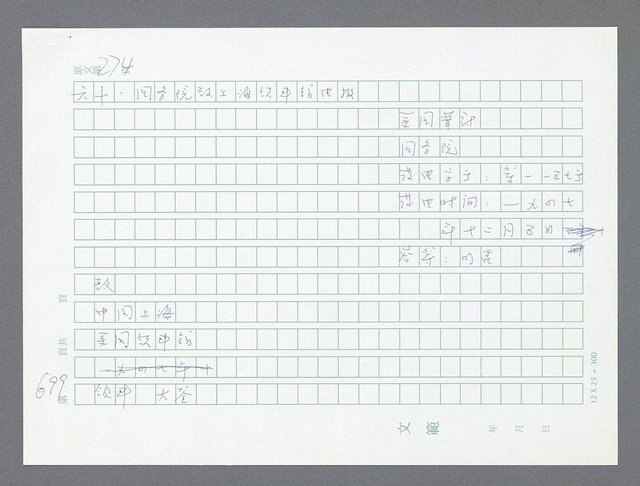 原文第274頁
六十、国务院致上海领事馆电报
美国华计
国务院
发电字号：第一一五七号
发电时间：一九四七
年十二月五日
签署：
致
中国上海
美国领事馆
一九四七年十
领事 大签
第699
頁共
頁
文範
年 月 日
12 X 25 = 300